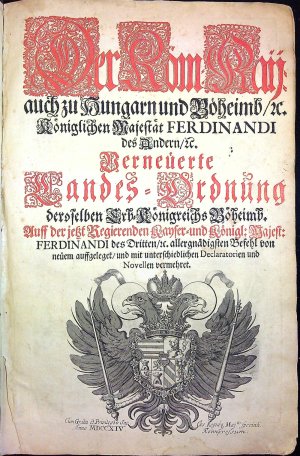 Der Röm: Käy:
auch zu Hungarn und Böheimb/ ꝛc.
Königlichen Majestät FERDINANDI
des Andern/ ꝛc.
Verneüerte
Landes-Ordnung
deroselben Erb-Königreichs Böheimb.
Auff der jetzt Regierenden Kayser- und Königl: Majest:
FERDINANDI des Dritten/ ꝛc. allergnädigsten Befehl von
neüem auffgeleget/ und mit unterschiedlichen Declaratorien und
Novellen vermehret.
Cum Gratia et Privilegio
Anno MDCCXIV